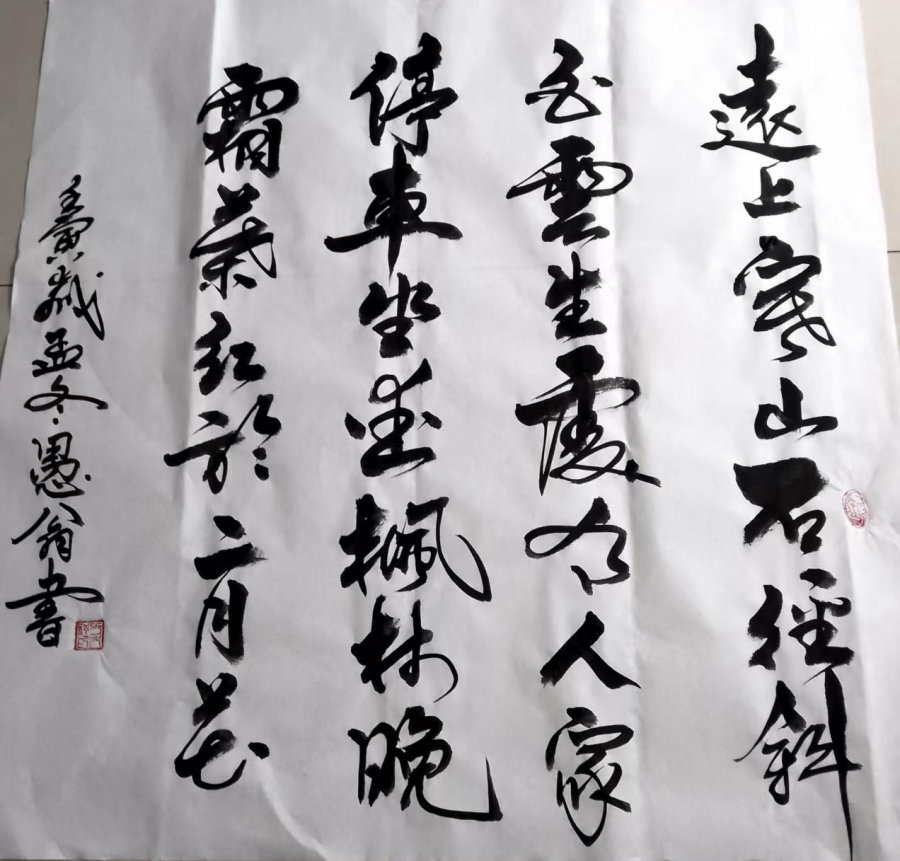 遠上寒山石徑斜
白雲生處有人家
停車坐愛楓林晚
霜葉紅於二月花
壬寅歲孟冬愚翁書